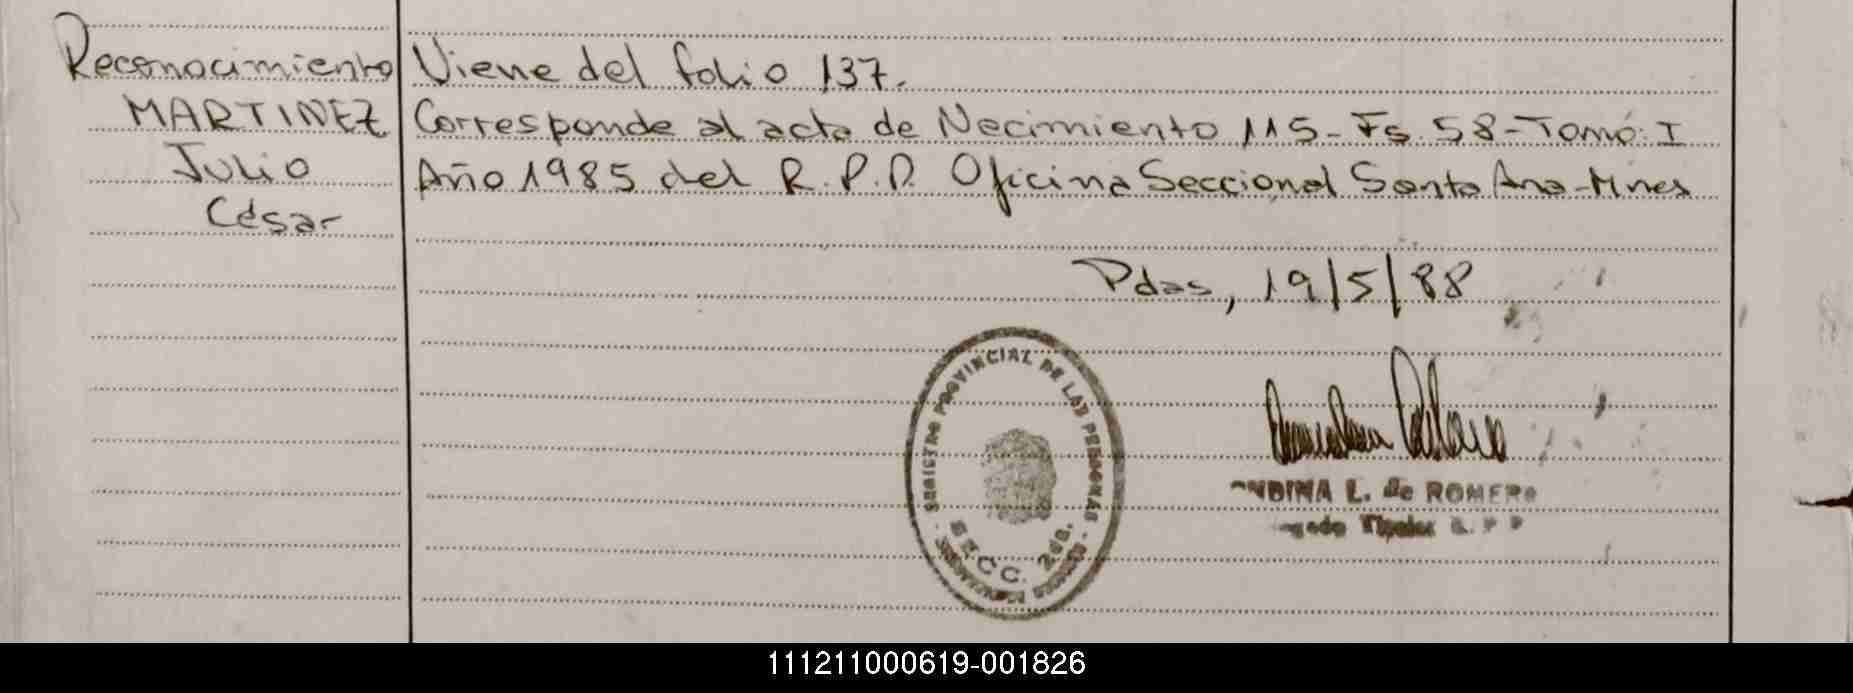 Reconocimiento
MARTINEZ
Julio
César
Viene del folio 137.
Corresponde al acta de Nacimiento 115-Fs. 58-Tomo: I
Año 1985 del R.P.P. Oficina Seccional Santa Ana-Mnes
Pdas, 19/5/88
REGISTRO PROVINCIAL DE LAS PERSONAS
SECC. 2da.
L. de ROMERO
111211000619-001826